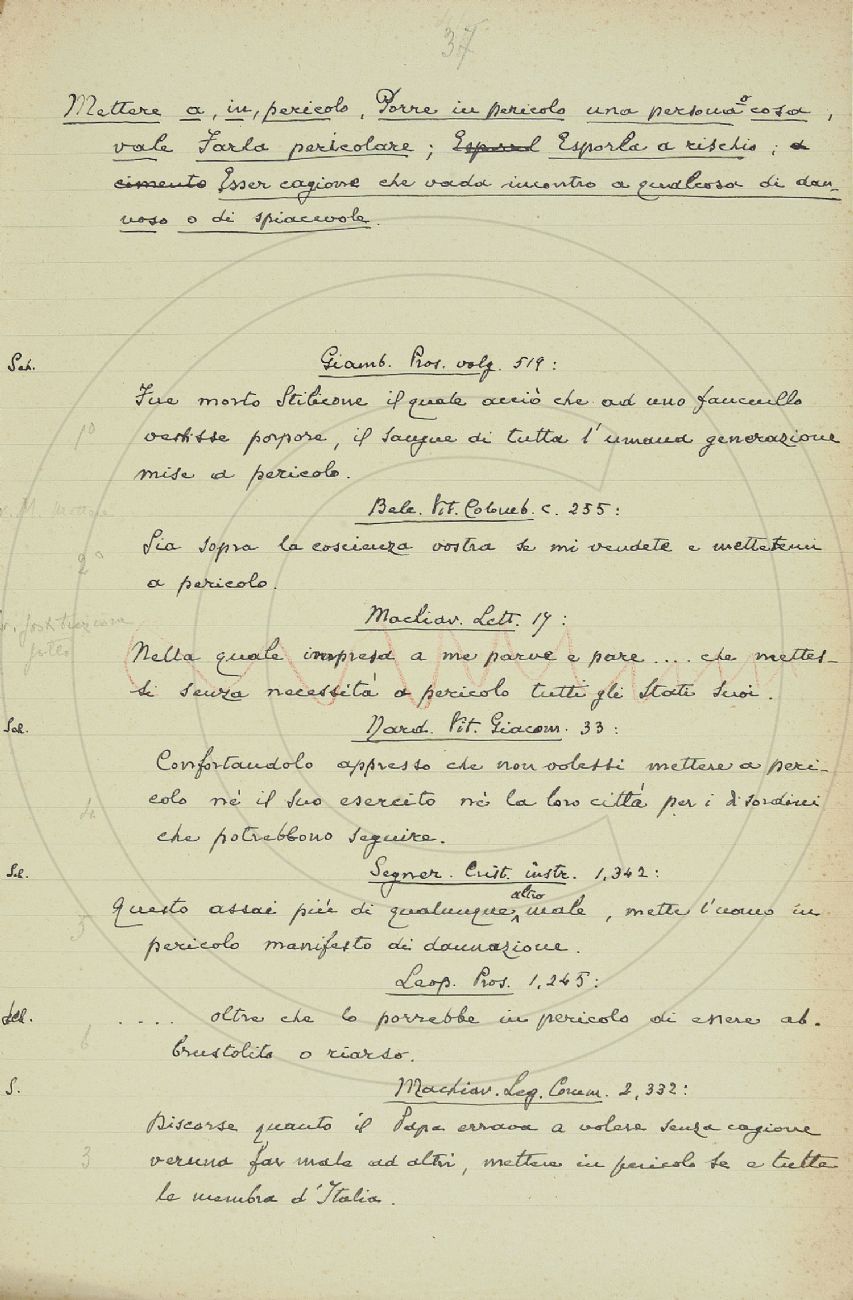 37
Mettere a, in, pericolo, Porre in pericolo una persona o cosa,
vale Farla pericolare; Esporl Esporla a rischio; a
cimento Esser cagione che vada incontro a qualcosa di dan-
noso o di spiacevole.
Sch. Giamb. Pros. volg. 519:
Fue morto Stilicone il quale acciò che ad uno fanciullo
1º vestisse porpore, il sangue di tutta l'umana generazione
mise a pericolo.
Belc. Vit. Colomb. c. 255:
Sia sopra la coscienza vostra se mi vendete e mettetemi
2º a pericolo.
Machiav. Lett. 17:
Nella quale impresa a me parve e pare .... che mettes-
si senza necessità a pericolo tutti gli Stati suoi.
Sal. Nard. Vit. Giacom. 33:
Confortandolo appresso che non volessi mettere a peri-
4. colo nè il suo esercito nè la loro città per i disordini
che potrebbono seguire.
Sal. Segner. Crist. instr. 1,342:
5 Questo assai più di qualunque altro male, mette l'uomo in
pericolo manifesto di dannazione.
Leop. Pros. 1,245:
.... oltre che lo porrebbe in pericolo di essere ab-
6 brustolito o riarso.
S. Machiav. Leg. Comm. 2,332:
Discorse quanto il Papa errava a volere senza cagione
3 veruna far male ad altri, mettere in pericolo se e tutte
le membra d'Italia.